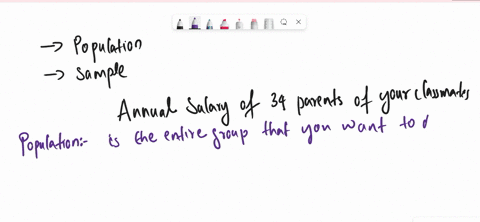 → Population
→ Sample
Annual Salary of 34 parents of your classmates
Population:- is the entire group that you want to d